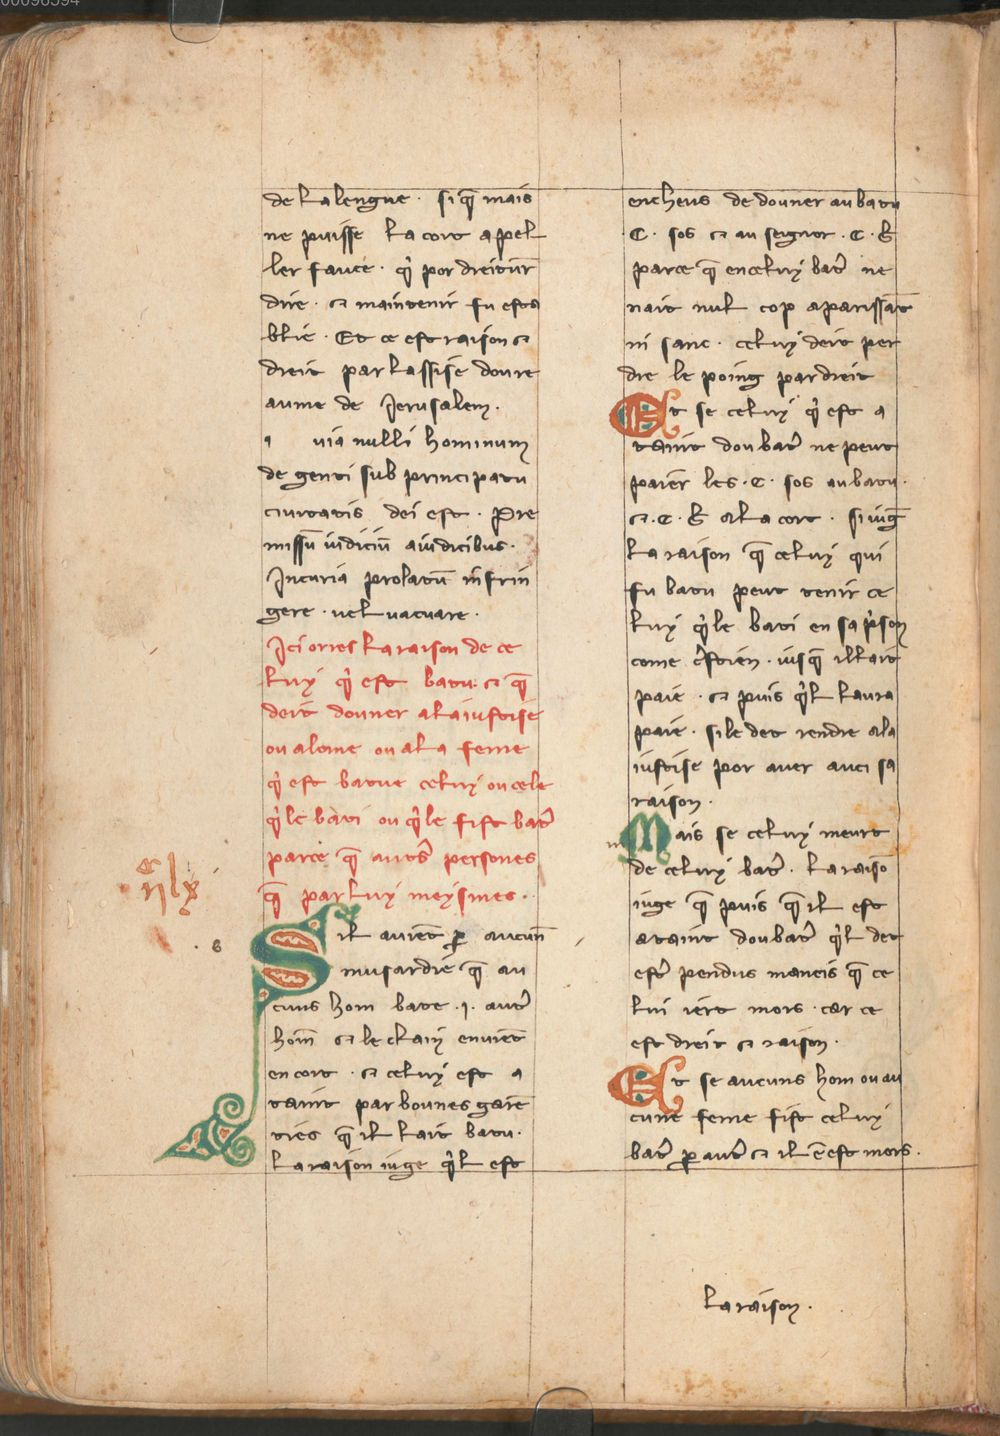 00096394
de la lengue · si q̄ mais
ne puisse la cort apel
ler fauce · q̇ por dreitur̄
dire · ⁊ maintenir fu esta
blie · Et ce est raison ⁊
dreit par lassise dou re
aume de Jerusalem ·
uia nulli hominum
de genti sub principatu
ciuitatis dei est · Pre
missū iudiciū a iudicibus ·
In curia prolatū infrin
gere · uel uacuare ·
Ici orres la raison de ce
luy q̇ est batu · ⁊ q̄
deit douner a la iustise
ou alome ou a la feme
q̇ est batue celuy ou cele
q̇ le bati ou q̇ le fist batr̄
parce q̄ autrs̄ persones
q̄ par luy meysmes ·
Sil auient̄ ꝑ aucun̄
musardie q̄ au
cuns hom bate · j · autr̄
hom̄ ⁊ le claiȳ en uient̄
en cort · ⁊ celuy est a
taint par bounes garē
ties q̄ il lait batu ·
la raison iuge q̇l est
encheus de douner au batu
· C · sos ⁊ au seignor · C · &
parce q̄ en celuy batr̄ ne
nait nul cop aparissāt
ni sanc · celuy deit per
dre le poing par dreit
Et se celuy q̇ est a
taint dou batr̄ ne peut
paier̄ les · C · sos au batu ·
⁊ · C · & a la cort · si iuḡ
la raison q̄ celuy qui
fu batu peut tenir ce
luy q̇ le bati en sa ṗson
come c̓stien · iusq̄ il lait
paie · ⁊ puis q̇l laura
paie · si le det rendre a la
iustise por auer auci sa
raison ·
Mais se celuy meurt
de celuy batr̄ · la raisō
iuge q̄ puis q̄ il est
ataint dou batr̄ q̇l det
estr̄ pendus maneis q̄ ce
lui iert mors · car ce
est dreit ⁊ raison ·
Et se aucuns hom ou au
cune feme fist celuy
batr̄ ꝑ autr̄ ⁊ il ē est mors ·
la raison ·